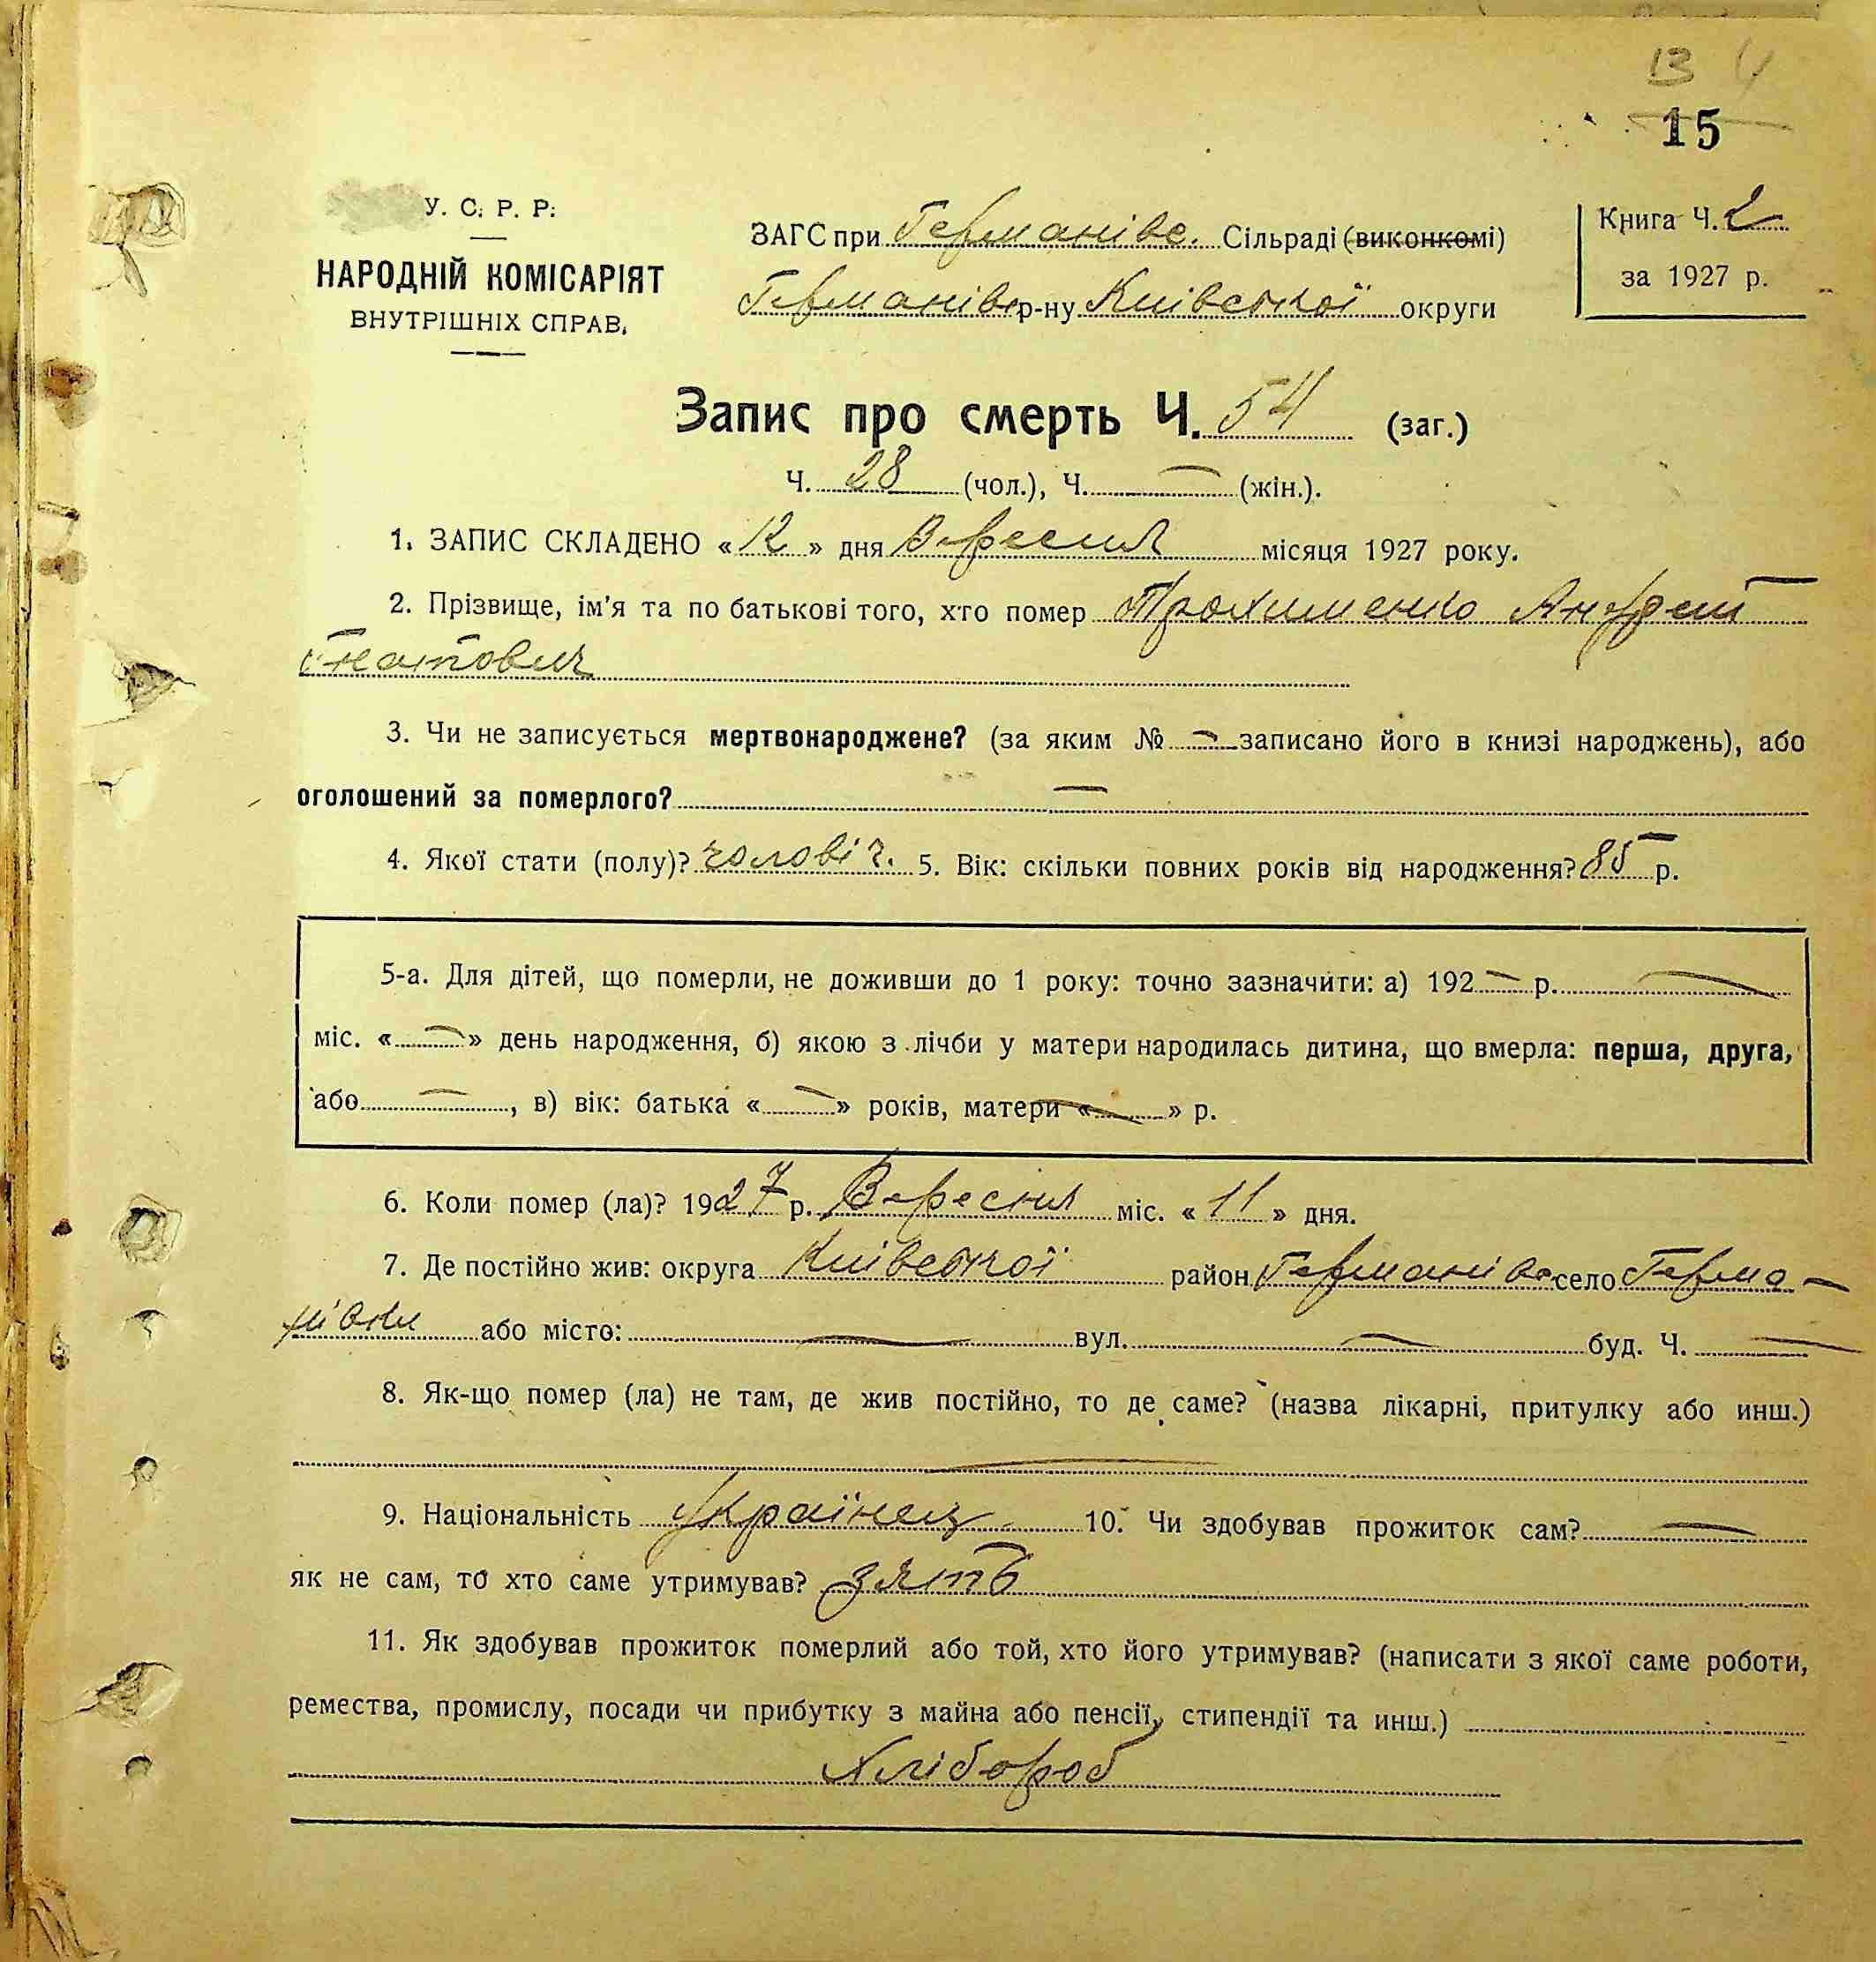 13 4
15
У. С. Р. Р.
НАРОДНІЙ КОМІСАРІЯТ
ВНУТРІШНІХ СПРАВ.
ЗАГС при Германівс. Сільраді (виконкомі)
Германівс р-ну Київської округи
Книга Ч. 2
за 1927 р.
Запис про смерть Ч. 54 (заг.)
Ч. 28 (чол.), Ч. — (жін.).
1. ЗАПИС СКЛАДЕНО «12» дня Вересня місяця 1927 року.
2. Прізвище, ім'я та по батькові того, хто помер Трохименко Андрей
Гнатович
3. Чи не записується мертвонароджене? (за яким № — записано його в книзі народжень), або
оголошений за померлого? —
4. Якої стати (полу)? чоловіч. 5. Вік: скільки повних років від народження? 85 р.
5-а. Для дітей, що померли, не доживши до 1 року: точно зазначити: а) 192 — р. —
міс. « — » день народження, б) якою з лічби у матери народилась дитина, що вмерла: перша, друга,
або — , в) вік: батька « — » років, матери « — » р.
6. Коли помер (ла)? 1927 р. Вересня міс. «11» дня.
7. Де постійно жив: округа Київської район Германівс село Герма-
нівки або місто: — вул. — буд. Ч. —
8. Як-що помер (ла) не там, де жив постійно, то де саме? (назва лікарні, притулку або инш.)
—
9. Національність Українец 10. Чи здобував прожиток сам? —
як не сам, то хто саме утримував? зять
11. Як здобував прожиток померлий або той, хто його утримував? (написати з якої саме роботи,
ремества, промислу, посади чи прибутку з майна або пенсії, стипендії та инш.)
Хлібороб